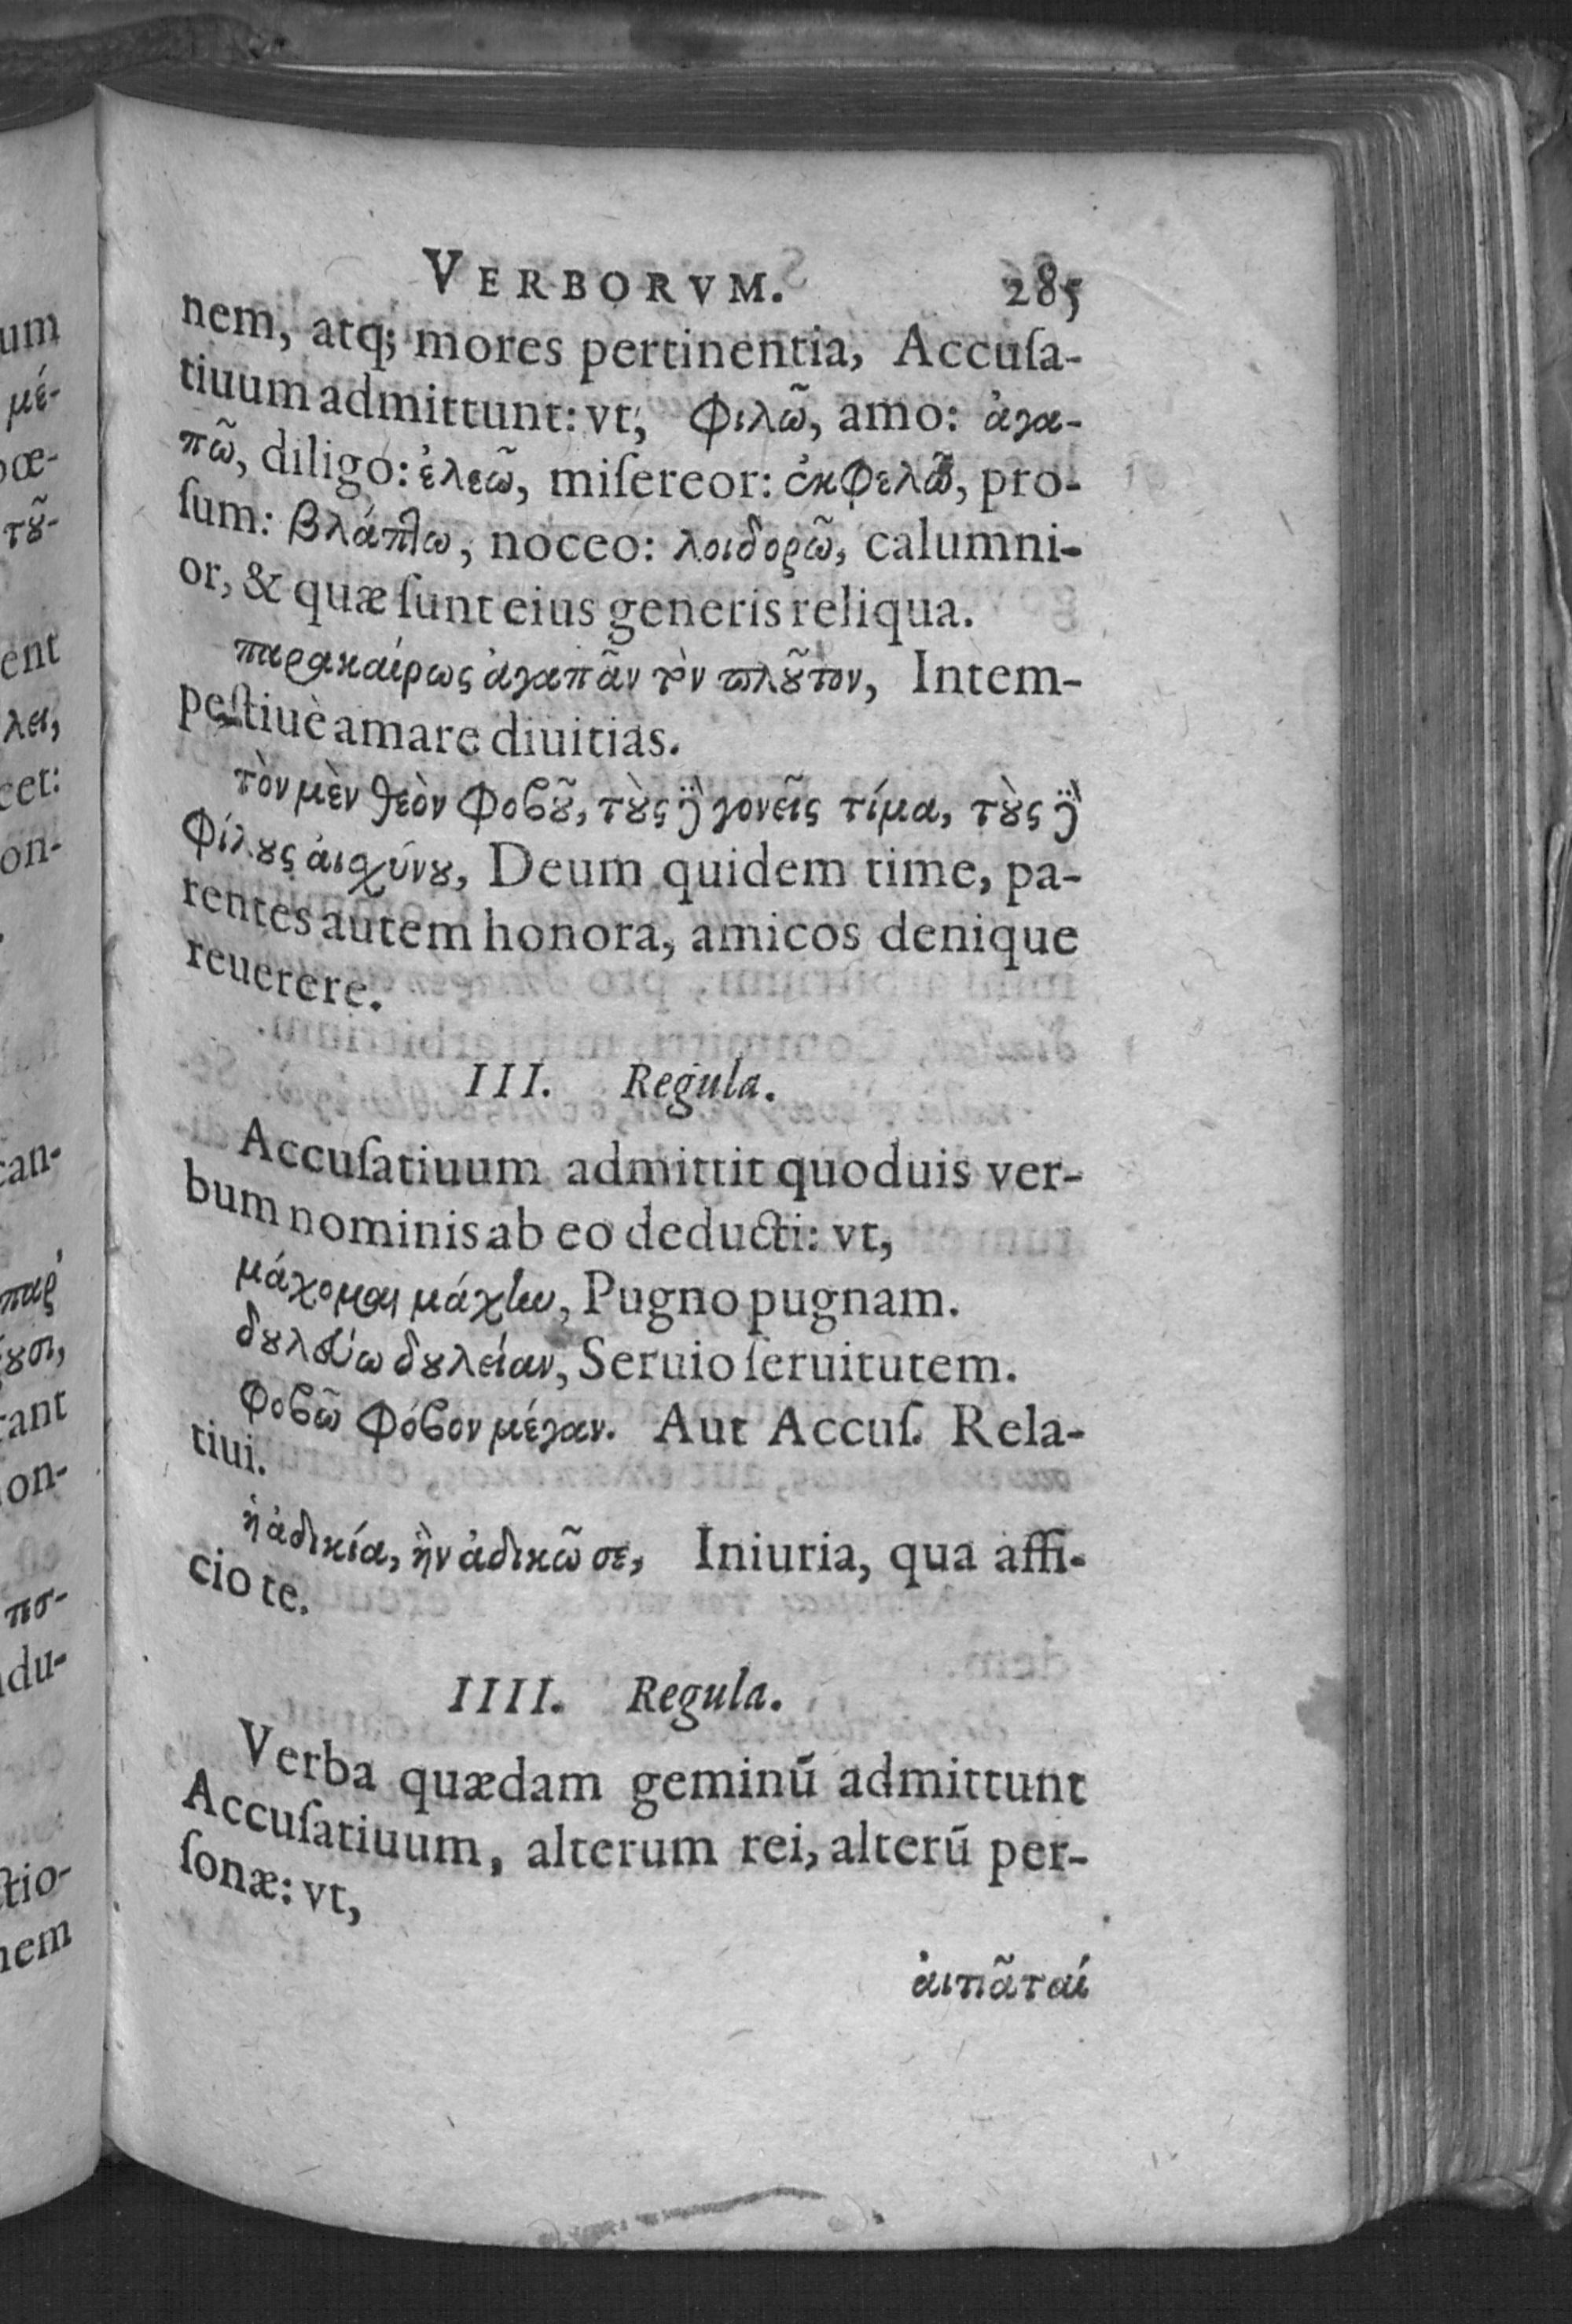 VERBORVM. 285
nem, atq; mores pertinentia, Accuſa-
tiuum admittunt: vt, φιλῶ, amo: ἀγα-
πῶ, diligo: ἐλεῶ, miſereor: ὀκφελῶ, pro-
ſum: βλάπτω, noceo: λοιδορῶ, calumni-
or, & quæ ſunt eius generis reliqua.
παρακαίρως ἀγαπᾶν τὸν πλοῦτον, Intem-
peſtiuè amare diuitias.
τὸν μὲν θεὸν φοβοῦ, τοὺς δὲ γονεῖς τίμα, τοὺς δὲ
φίλους ἀισχύνου, Deum quidem time, pa-
rentes autem honora, amicos denique
reuerere.
III. Regula.
Accuſatiuum admittit quoduis ver-
bum nominis ab eo deducti: vt,
μάχομαι μάχην, Pugno pugnam.
δουλεύω δουλείαν, Seruio ſeruitutem.
φοβῶ φόβον μέγαν. Aut Accuſ. Rela-
tiui.
ἡ ἀδικία, ἣν ἀδικῶ σε, Iniuria, qua affi-
cio te.
IIII. Regula.
Verba quædam geminū admittunt
Accuſatiuum, alterum rei, alterū per-
ſonæ: vt,
ἀιτιᾶταί
um
μέ-
œ-
τοῦ-
ent
λει,
cet:
on-
can-
παρ'
ουσι,
tant
on-
πο-
du-
ctio-
nem